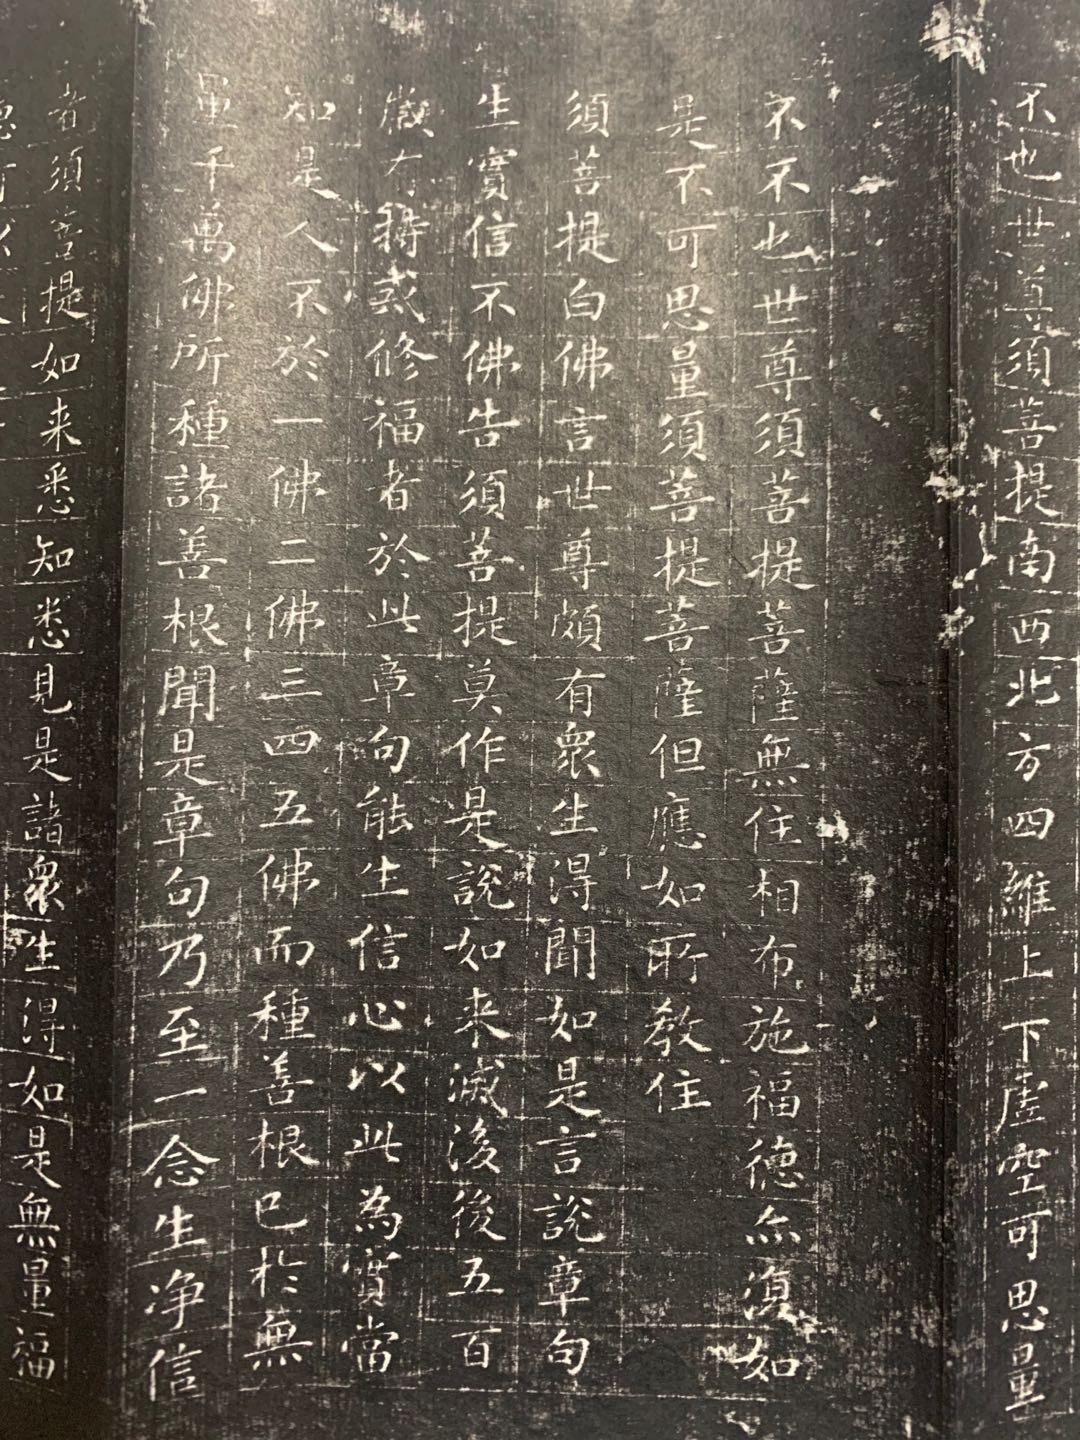 不也世尊須菩提南西北方四維上下虛空可思量
不不也世尊須菩提菩薩無住相布施福德亦復如
是不可思量須菩提菩薩但應如所教住
須菩提白佛言世尊頗有衆生得聞如是言說章句
生實信不佛告須菩提莫作是說如来滅後後五百
歲有持戒修福者於此章句能生信心以此為實當
知是人不於一佛二佛三四五佛而種善根已於無
量千萬佛所種諸善根聞是章句乃至一念生净信
者須菩提如来悉知悉見是諸衆生得如是無量福